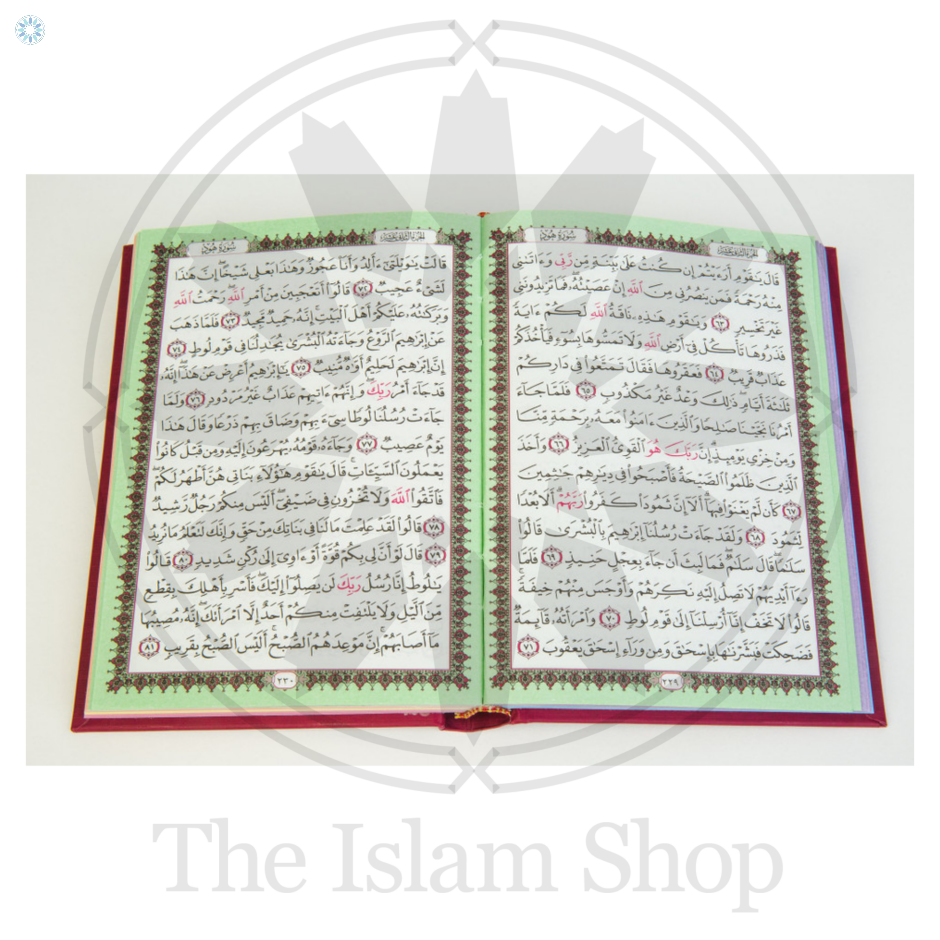 سُورَةُ هُودٍ
الجُزْءُ الثَّانِي عَشَرَ
قَالَ يَٰقَوْمِ أَرَءَيْتُمْ إِن كُنتُ عَلَىٰ بَيِّنَةٍ مِّن رَّبِّى وَءَاتَىٰنِى
مِنْهُ رَحْمَةً فَمَن يَنصُرُنِى مِنَ ٱللَّهِ إِنْ عَصَيْتُهُۥ فَمَا تَزِيدُونَنِى
غَيْرَ تَخْسِيرٍ ﴿٦٣﴾ وَيَٰقَوْمِ هَٰذِهِۦ نَاقَةُ ٱللَّهِ لَكُمْ ءَايَةً
فَذَرُوهَا تَأْكُلْ فِىٓ أَرْضِ ٱللَّهِ وَلَا تَمَسُّوهَا بِسُوٓءٍ فَيَأْخُذَكُمْ
عَذَابٌ قَرِيبٌ ﴿٦٤﴾ فَعَقَرُوهَا فَقَالَ تَمَتَّعُوا۟ فِى دَارِكُمْ
ثَلَٰثَةَ أَيَّامٍ ذَٰلِكَ وَعْدٌ غَيْرُ مَكْذُوبٍ ﴿٦٥﴾ فَلَمَّا جَآءَ
أَمْرُنَا نَجَّيْنَا صَٰلِحًا وَٱلَّذِينَ ءَامَنُوا۟ مَعَهُۥ بِرَحْمَةٍ مِّنَّا
وَمِنْ خِزْىِ يَوْمِئِذٍ إِنَّ رَبَّكَ هُوَ ٱلْقَوِىُّ ٱلْعَزِيزُ ﴿٦٦﴾ وَأَخَذَ
ٱلَّذِينَ ظَلَمُوا۟ ٱلصَّيْحَةُ فَأَصْبَحُوا۟ فِى دِيَٰرِهِمْ جَٰثِمِينَ
﴿٦٧﴾ كَأَن لَّمْ يَغْنَوْا۟ فِيهَآ أَلَآ إِنَّ ثَمُودَا۟ كَفَرُوا۟ رَبَّهُمْ أَلَا بُعْدًا
لِّثَمُودَ ﴿٦٨﴾ وَلَقَدْ جَآءَتْ رُسُلُنَآ إِبْرَٰهِيمَ بِٱلْبُشْرَىٰ قَالُوا۟
سَلَٰمًا قَالَ سَلَٰمٌ فَمَا لَبِثَ أَن جَآءَ بِعِجْلٍ حَنِيذٍ ﴿٦٩﴾ فَلَمَّا
رَءَآ أَيْدِيَهُمْ لَا تَصِلُ إِلَيْهِ نَكِرَهُمْ وَأَوْجَسَ مِنْهُمْ خِيفَةً
قَالُوا۟ لَا تَخَفْ إِنَّآ أُرْسِلْنَآ إِلَىٰ قَوْمِ لُوطٍ ﴿٧٠﴾ وَٱمْرَأَتُهُۥ قَآئِمَةٌ
فَضَحِكَتْ فَبَشَّرْنَٰهَا بِإِسْحَٰقَ وَمِن وَرَآءِ إِسْحَٰقَ يَعْقُوبَ ﴿٧١﴾
٢٢٩
الجُزْءُ الثَّانِي عَشَرَ
سُورَةُ هُودٍ
قَالَتْ يَٰوَيْلَتَىٰٓ ءَأَلِدُ وَأَنَا۠ عَجُوزٌ وَهَٰذَا بَعْلِى شَيْخًا إِنَّ هَٰذَا
لَشَىْءٌ عَجِيبٌ ﴿٧٢﴾ قَالُوٓا۟ أَتَعْجَبِينَ مِنْ أَمْرِ ٱللَّهِ رَحْمَتُ ٱللَّهِ
وَبَرَكَٰتُهُۥ عَلَيْكُمْ أَهْلَ ٱلْبَيْتِ إِنَّهُۥ حَمِيدٌ مَّجِيدٌ ﴿٧٣﴾ فَلَمَّا ذَهَبَ
عَنْ إِبْرَٰهِيمَ ٱلرَّوْعُ وَجَآءَتْهُ ٱلْبُشْرَىٰ يُجَٰدِلُنَا فِى قَوْمِ لُوطٍ ﴿٧٤﴾
إِنَّ إِبْرَٰهِيمَ لَحَلِيمٌ أَوَّٰهٌ مُّنِيبٌ ﴿٧٥﴾ يَٰٓإِبْرَٰهِيمُ أَعْرِضْ عَنْ هَٰذَآ إِنَّهُۥ
قَدْ جَآءَ أَمْرُ رَبِّكَ وَإِنَّهُمْ ءَاتِيهِمْ عَذَابٌ غَيْرُ مَرْدُودٍ ﴿٧٦﴾ وَلَمَّا
جَآءَتْ رُسُلُنَا لُوطًا سِىٓءَ بِهِمْ وَضَاقَ بِهِمْ ذَرْعًا وَقَالَ هَٰذَا
يَوْمٌ عَصِيبٌ ﴿٧٧﴾ وَجَآءَهُۥ قَوْمُهُۥ يُهْرَعُونَ إِلَيْهِ وَمِن قَبْلُ كَانُوا۟
يَعْمَلُونَ ٱلسَّيِّـَٔاتِ قَالَ يَٰقَوْمِ هَٰٓؤُلَآءِ بَنَاتِى هُنَّ أَطْهَرُ لَكُمْ
فَٱتَّقُوا۟ ٱللَّهَ وَلَا تُخْزُونِ فِى ضَيْفِىٓ أَلَيْسَ مِنكُمْ رَجُلٌ رَّشِيدٌ
﴿٧٨﴾ قَالُوا۟ لَقَدْ عَلِمْتَ مَا لَنَا فِى بَنَاتِكَ مِنْ حَقٍّ وَإِنَّكَ لَتَعْلَمُ مَا نُرِيدُ
﴿٧٩﴾ قَالَ لَوْ أَنَّ لِى بِكُمْ قُوَّةً أَوْ ءَاوِىٓ إِلَىٰ رُكْنٍ شَدِيدٍ ﴿٨٠﴾ قَالُوا۟
يَٰلُوطُ إِنَّا رُسُلُ رَبِّكَ لَن يَصِلُوٓا۟ إِلَيْكَ فَأَسْرِ بِأَهْلِكَ بِقِطْعٍ
مِّنَ ٱلَّيْلِ وَلَا يَلْتَفِتْ مِنكُمْ أَحَدٌ إِلَّا ٱمْرَأَتَكَ إِنَّهُۥ مُصِيبُهَا
مَآ أَصَابَهُمْ إِنَّ مَوْعِدَهُمُ ٱلصُّبْحُ أَلَيْسَ ٱلصُّبْحُ بِقَرِيبٍ ﴿٨١﴾
٢٣٠
The Islam Shop